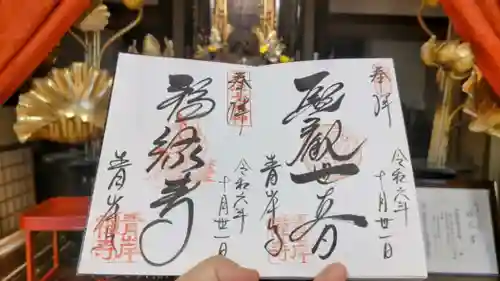 奉拝
聖観世音
令和六年
十月丗一日
青岸寺
奉拝
福禄寿
令和六年
十月丗一日
青岸寺